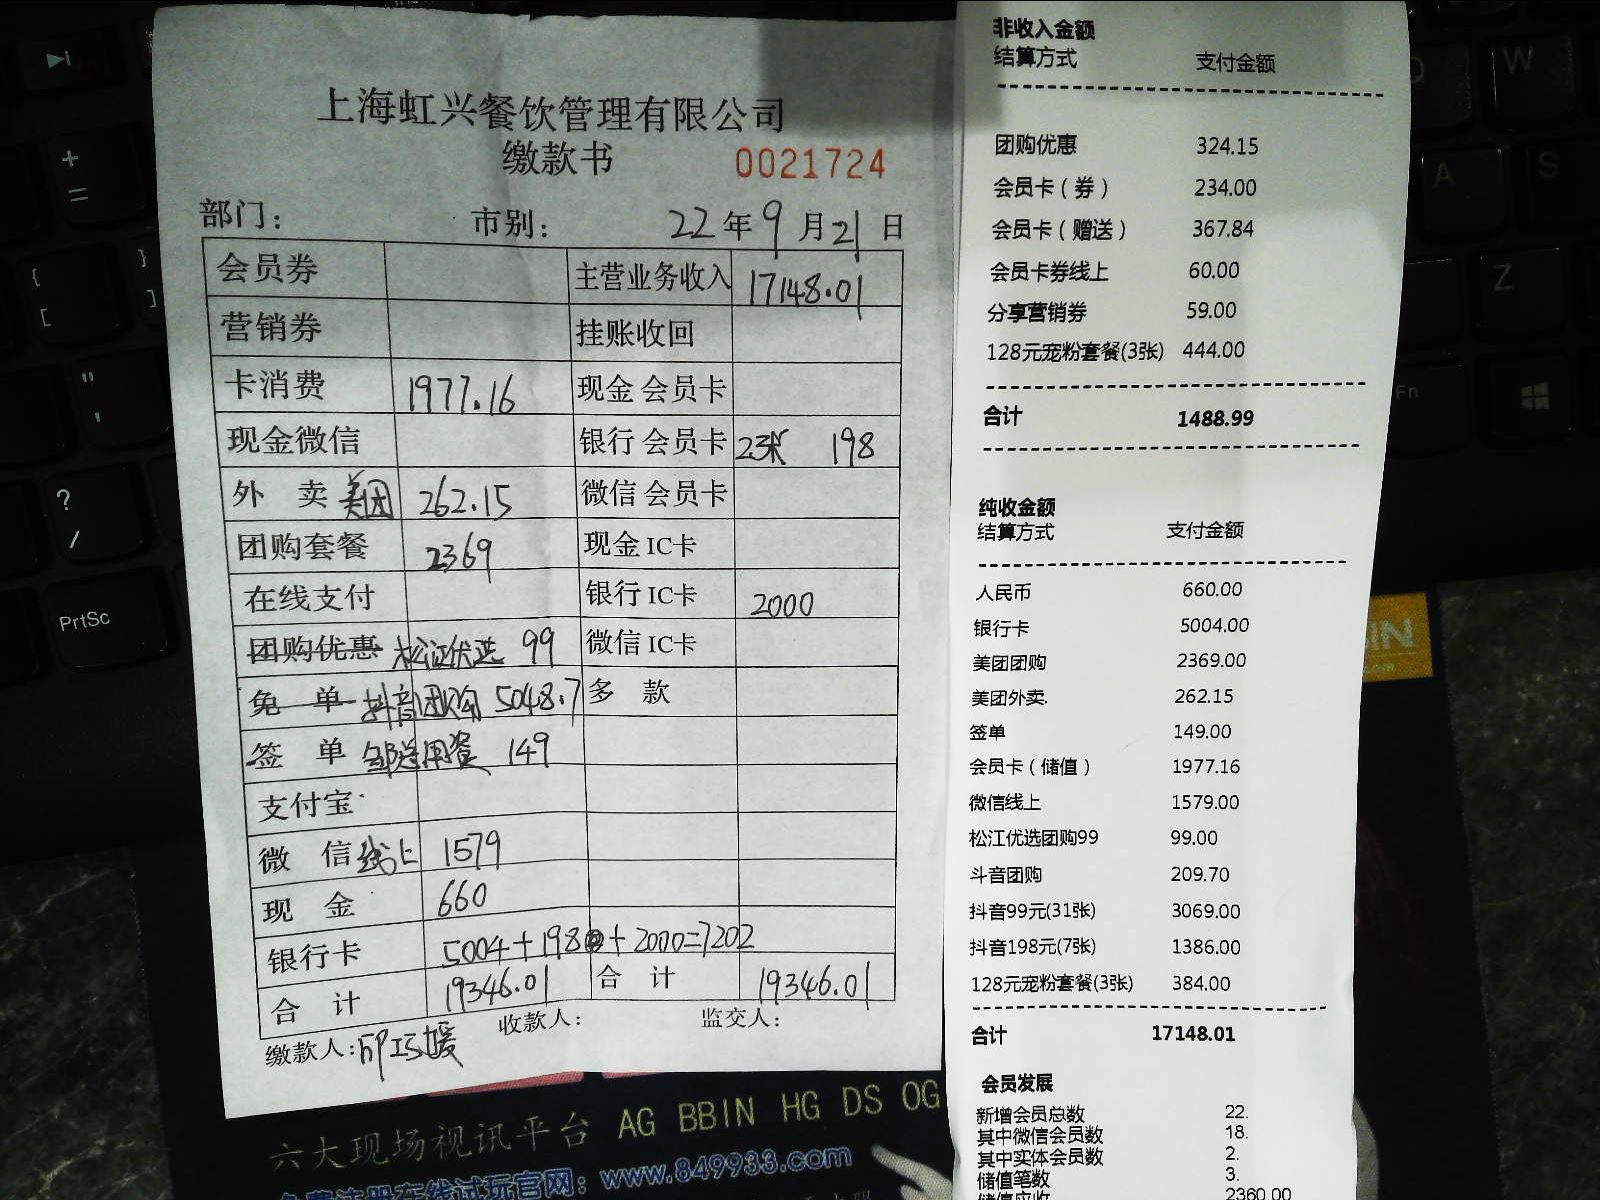 上海虹兴餐饮管理有限公司
缴款书 0021724
部门: 市别: 22年9月21日
会员券 主营业务收入 17148.01
营销券 挂账收回
卡消费 1977.16 现金会员卡
现金微信 银行会员卡 23张 198
外 卖 美团 262.15 微信会员卡
团购套餐 2369 现金IC卡
在线支付 银行IC卡 2000
团购优惠 松江优选 99 微信IC卡
免 单 抖音团购 5048.7 多 款
签 单 邹总用餐 149
支付宝
微 信 线上 1579
现 金 660
银行卡 5004+198+2000=7202
合 计 19346.01 合 计 19346.01
收款人: 监交人:
缴款人:
六大现场视讯平台 AG BBIN HG DS OG
免费注册在线试玩官网: www.849933.com
非收入金额
结算方式 支付金额
团购优惠 324.15
会员卡(券) 234.00
会员卡(赠送) 367.84
会员卡券线上 60.00
分享营销券 59.00
128元宠粉套餐(3张) 444.00
合计 1488.99
纯收金额
结算方式 支付金额
人民币 660.00
银行卡 5004.00
美团团购 2369.00
美团外卖. 262.15
签单 149.00
会员卡(储值) 1977.16
微信线上 1579.00
松江优选团购99 99.00
斗音团购 209.70
抖音99元(31张) 3069.00
抖音198元(7张) 1386.00
128元宠粉套餐(3张) 384.00
合计 17148.01
会员发展
新增会员总数 22.
其中微信会员数 18.
其中实体会员数 2.
储值笔数 3.
储值应收 2360.00
PrtSc
Fn
W
A
S
Z